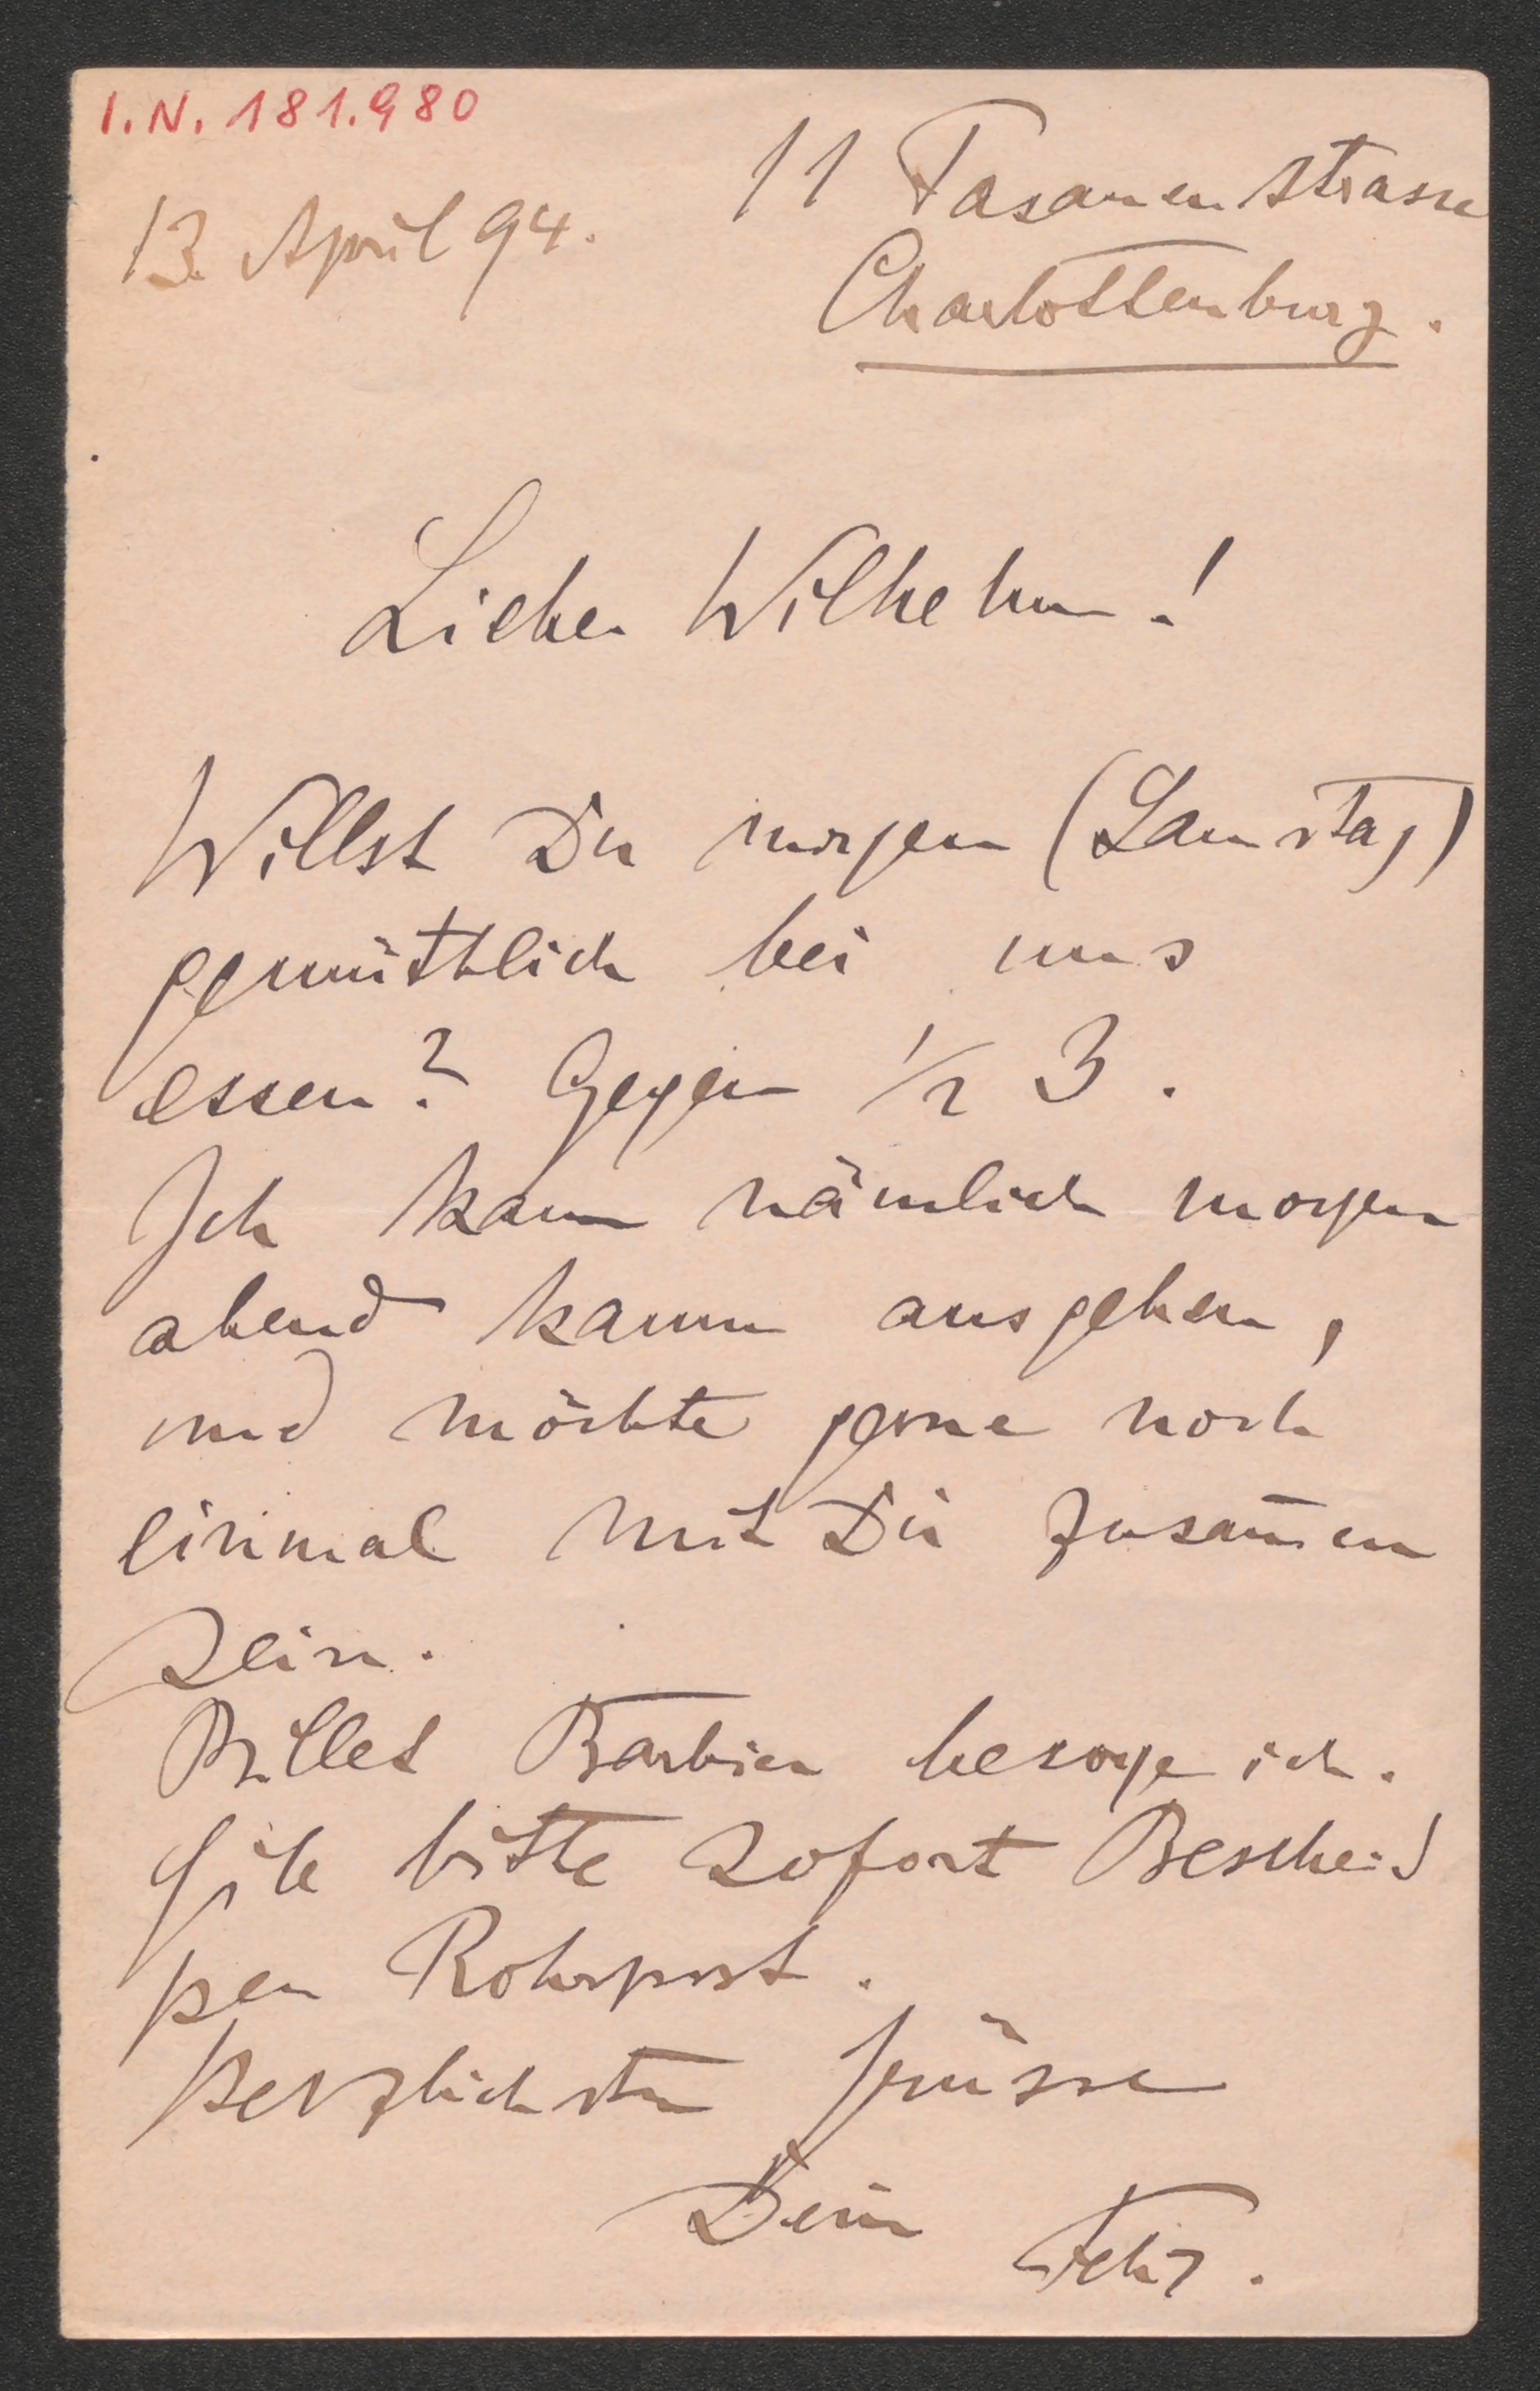 I.N. 181.980
11 Fasanenstrasse
13. April 94.
Charlottenburg.
Lieber Wilhelm!
Willst Du morgen (Samstag)
gemüthlich bei uns
essen? Gegen 1/2 3.
Ich kann nämlich morgen
abend kaum ausgehen,
und möchte gerne noch
einmal mit Dir zusam̄en
sein.
Billet Barbier besorge ich.
Gib bitte sofort Bescheid
per Rohrpost.
Herzlichste Grüsse
Dein